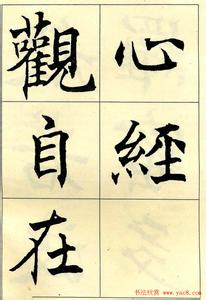 心經
觀自在
书法欣赏
www.yac8.com